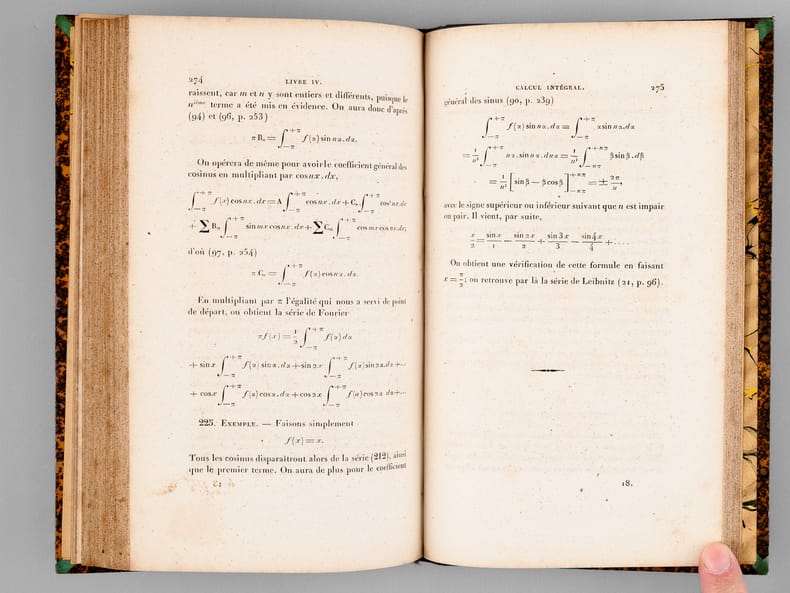 274
LIVRE IV.
raissent, car m et n y sont entiers et différents, puisque le
nième terme a été mis en évidence. On aura donc d'après
(94) et (96, p. 253)
πBₙ = ∫₋π⁺π f(α) sin nα.dα.
On opérera de même pour avoir le coefficient général des
cosinus en multipliant par cos nx.dx,
∫₋π⁺π f(x) cos nx.dx = A ∫₋π⁺π cos nx.dx + Cₙ ∫₋π⁺π cos² nx.dx
+ ∑ Bₘ ∫₋π⁺π sin mx cos nx.dx + ∑ Cₘ ∫₋π⁺π cos mx cos nx.dx,
d'où (97, p. 254)
πCₙ = ∫₋π⁺π f(α) cos nα.dα.
En multipliant par π l'égalité qui nous a servi de point
de départ, on obtient la série de Fourier
πf(x) = 1/2 ∫₋π⁺π f(α) dα
+ sin x ∫₋π⁺π f(α) sin α.dα + sin 2x ∫₋π⁺π f(α) sin 2α.dα + ...
+ cos x ∫₋π⁺π f(α) cos α.dα + cos 2x ∫₋π⁺π f(α) cos 2α dα + ...
225. EXEMPLE. — Faisons simplement
f(x) = x.
Tous les cosinus disparaîtront alors de la série (212), ainsi
que le premier terme. On aura de plus pour le coefficient
CALCUL INTÉGRAL.
275
général des sinus (90, p. 239)
∫₋π⁺π f(α) sin nα.dα = ∫₋π⁺π α sin nα.dα
= 1/n² ∫₋π⁺π nα.sin nα.dnα = 1/n² ∫₋nπ⁺nπ β sin β.dβ
= 1/n² [sin β − β cos β]₋nπ⁺nπ = ± 2π/n,
avec le signe supérieur ou inférieur suivant que n est impair
ou pair. Il vient, par suite,
x/2 = sin x/1 − sin 2x/2 + sin 3x/3 − sin 4x/4 + ....
On obtient une vérification de cette formule en faisant
x = π/2; on retrouve par là la série de Leibnitz (21, p. 96).
18.